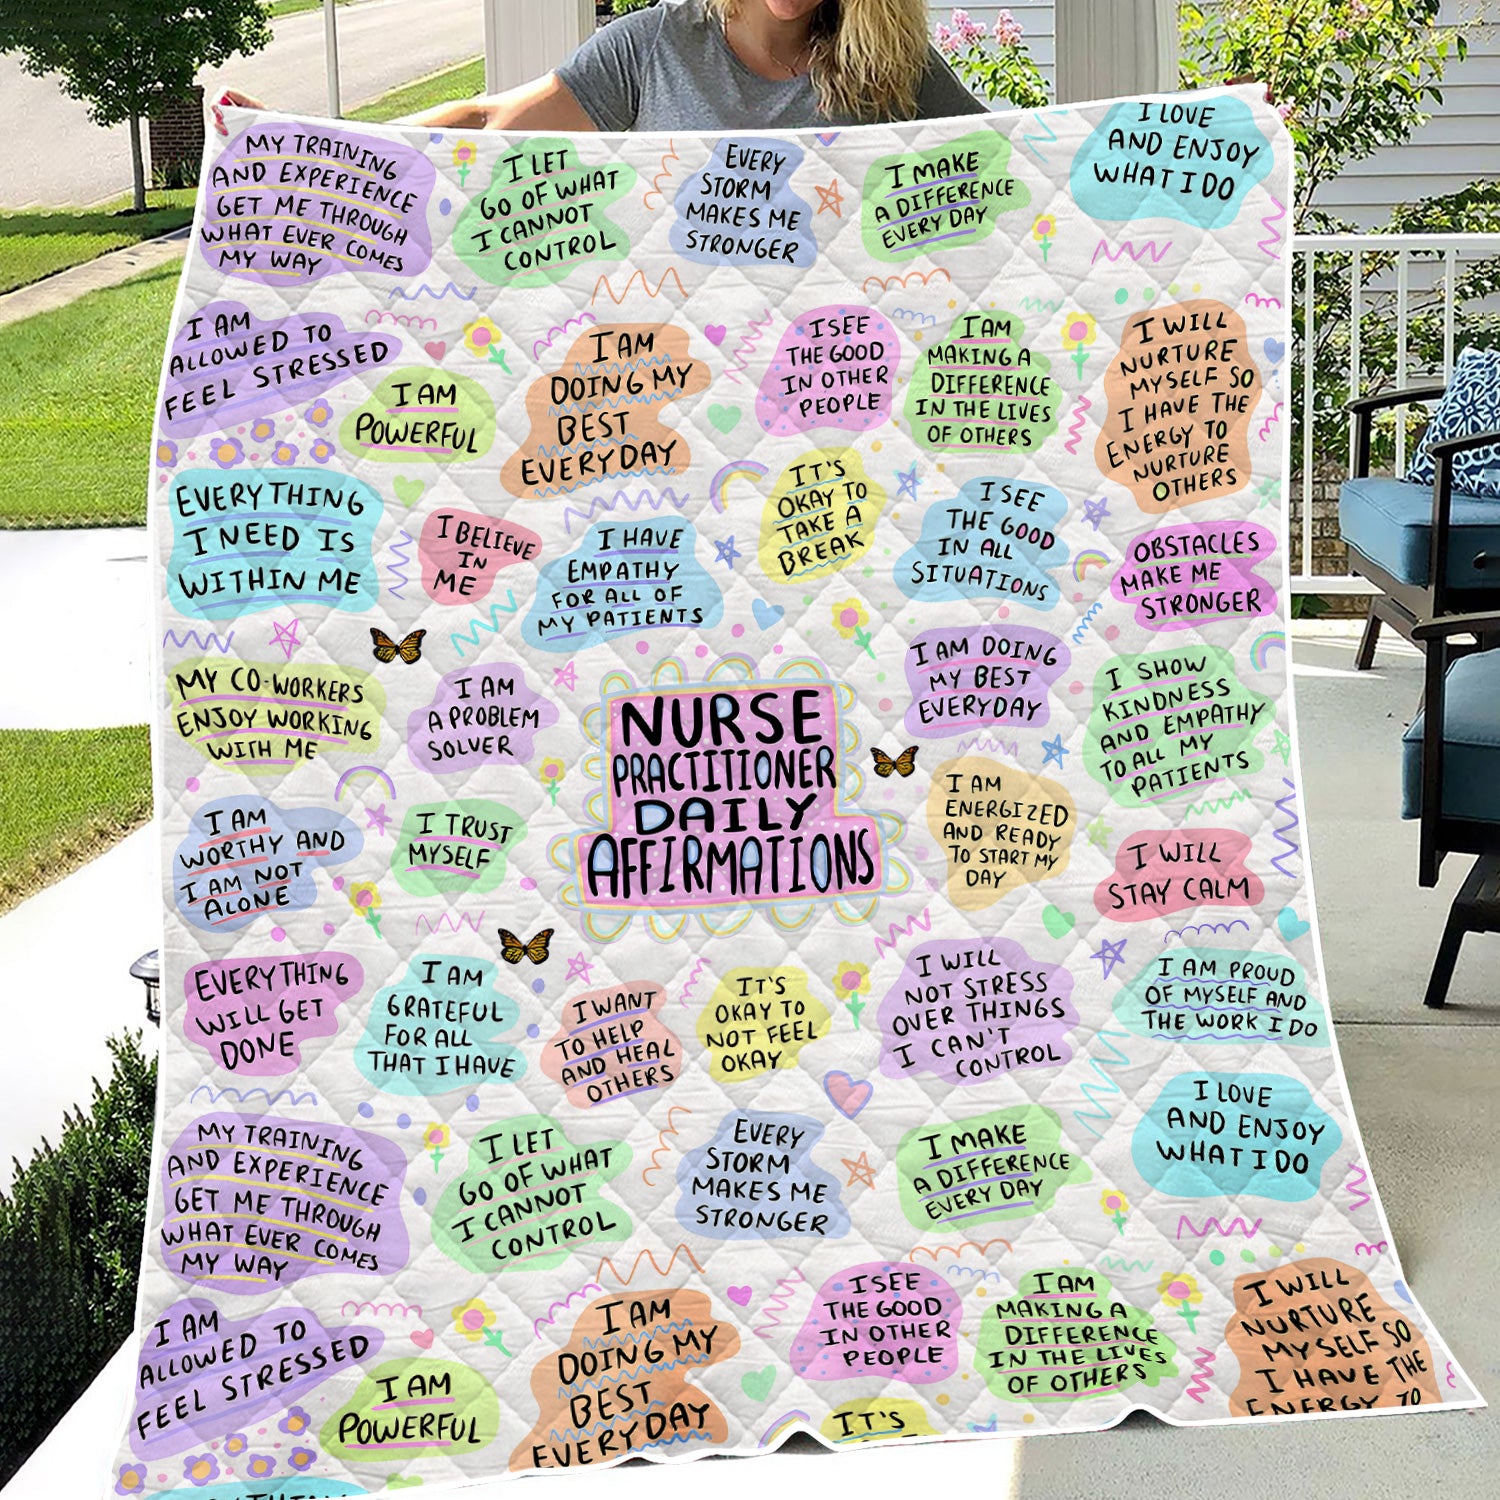 MY TRAINING
AND EXPERIENCE
GET ME THROUGH
WHAT EVER COMES
MY WAY
I LET
GO OF WHAT
I CANNOT
CONTROL
EVERY
STORM
MAKES ME
STRONGER
I MAKE
A DIFFERENCE
EVERY DAY
I LOVE
AND ENJOY
WHAT I DO
I AM
ALLOWED TO
FEEL STRESSED
I AM
POWERFUL
I AM
DOING MY
BEST
EVERYDAY
I SEE
THE GOOD
IN OTHER
PEOPLE
I AM
MAKING A
DIFFERENCE
IN THE LIVES
OF OTHERS
I WILL
NURTURE
MYSELF SO
I HAVE THE
ENERGY TO
NURTURE
OTHERS
EVERYTHING
I NEED IS
WITHIN ME
I BELIEVE
IN
ME
I HAVE
EMPATHY
FOR ALL OF
MY PATIENTS
IT'S
OKAY TO
TAKE A
BREAK
I SEE
THE GOOD
IN ALL
SITUATIONS
OBSTACLES
MAKE ME
STRONGER
MY CO-WORKERS
ENJOY WORKING
WITH ME
I AM
A PROBLEM
SOLVER
NURSE
PRACTITIONER
DAILY
AFFIRMATIONS
I AM DOING
MY BEST
EVERYDAY
I SHOW
KINDNESS
AND EMPATHY
TO ALL MY
PATIENTS
I AM
WORTHY AND
I AM NOT
ALONE
I TRUST
MYSELF
I AM
ENERGIZED
AND READY
TO START MY
DAY
I WILL
STAY CALM
EVERYTHING
WILL GET
DONE
I AM
GRATEFUL
FOR ALL
THAT I HAVE
I WANT
TO HELP
AND HEAL
OTHERS
IT'S
OKAY TO
NOT FEEL
OKAY
I WILL
NOT STRESS
OVER THINGS
I CAN'T
CONTROL
I AM PROUD
OF MYSELF AND
THE WORK I DO
MY TRAINING
AND EXPERIENCE
GET ME THROUGH
WHAT EVER COMES
MY WAY
I LET
GO OF WHAT
I CANNOT
CONTROL
EVERY
STORM
MAKES ME
STRONGER
I MAKE
A DIFFERENCE
EVERY DAY
I LOVE
AND ENJOY
WHAT I DO
I AM
ALLOWED TO
FEEL STRESSED
I AM
POWERFUL
I AM
DOING MY
BEST
EVERYDAY
I SEE
THE GOOD
IN OTHER
PEOPLE
I AM
MAKING A
DIFFERENCE
IN THE LIVES
OF OTHERS
I WILL
NURTURE
MYSELF SO
I HAVE THE
ENERGY TO
IT'S